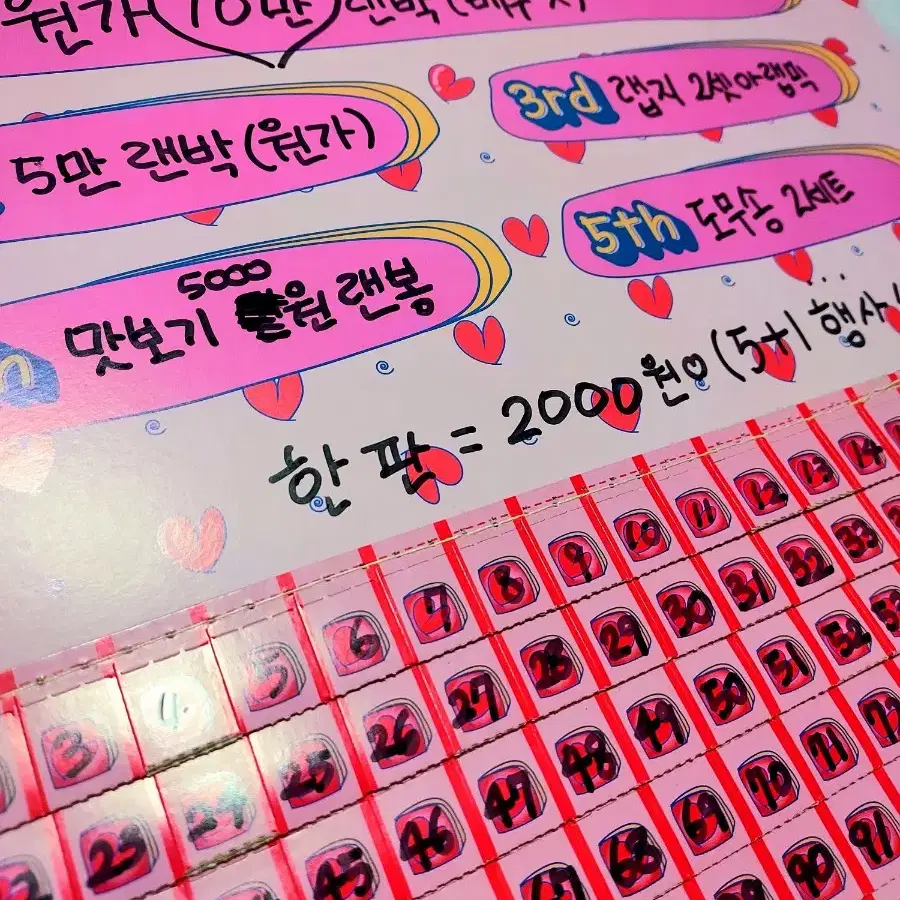 원가 10만 랜박
5만 랜박 (원가)
3rd 랩지 2셋 or 랩픽
5000
맛보기 원 랜봉
5th 도무송 2세트
한 판 = 2000원♡ (5+1 행사
5 6 7 8 9 10 11 12 13 14
3 4
23 24 25 26 27 28 29 30 31 32 33
45 46 47 48 49 50 51 52
67 68 69 70 71
90 91